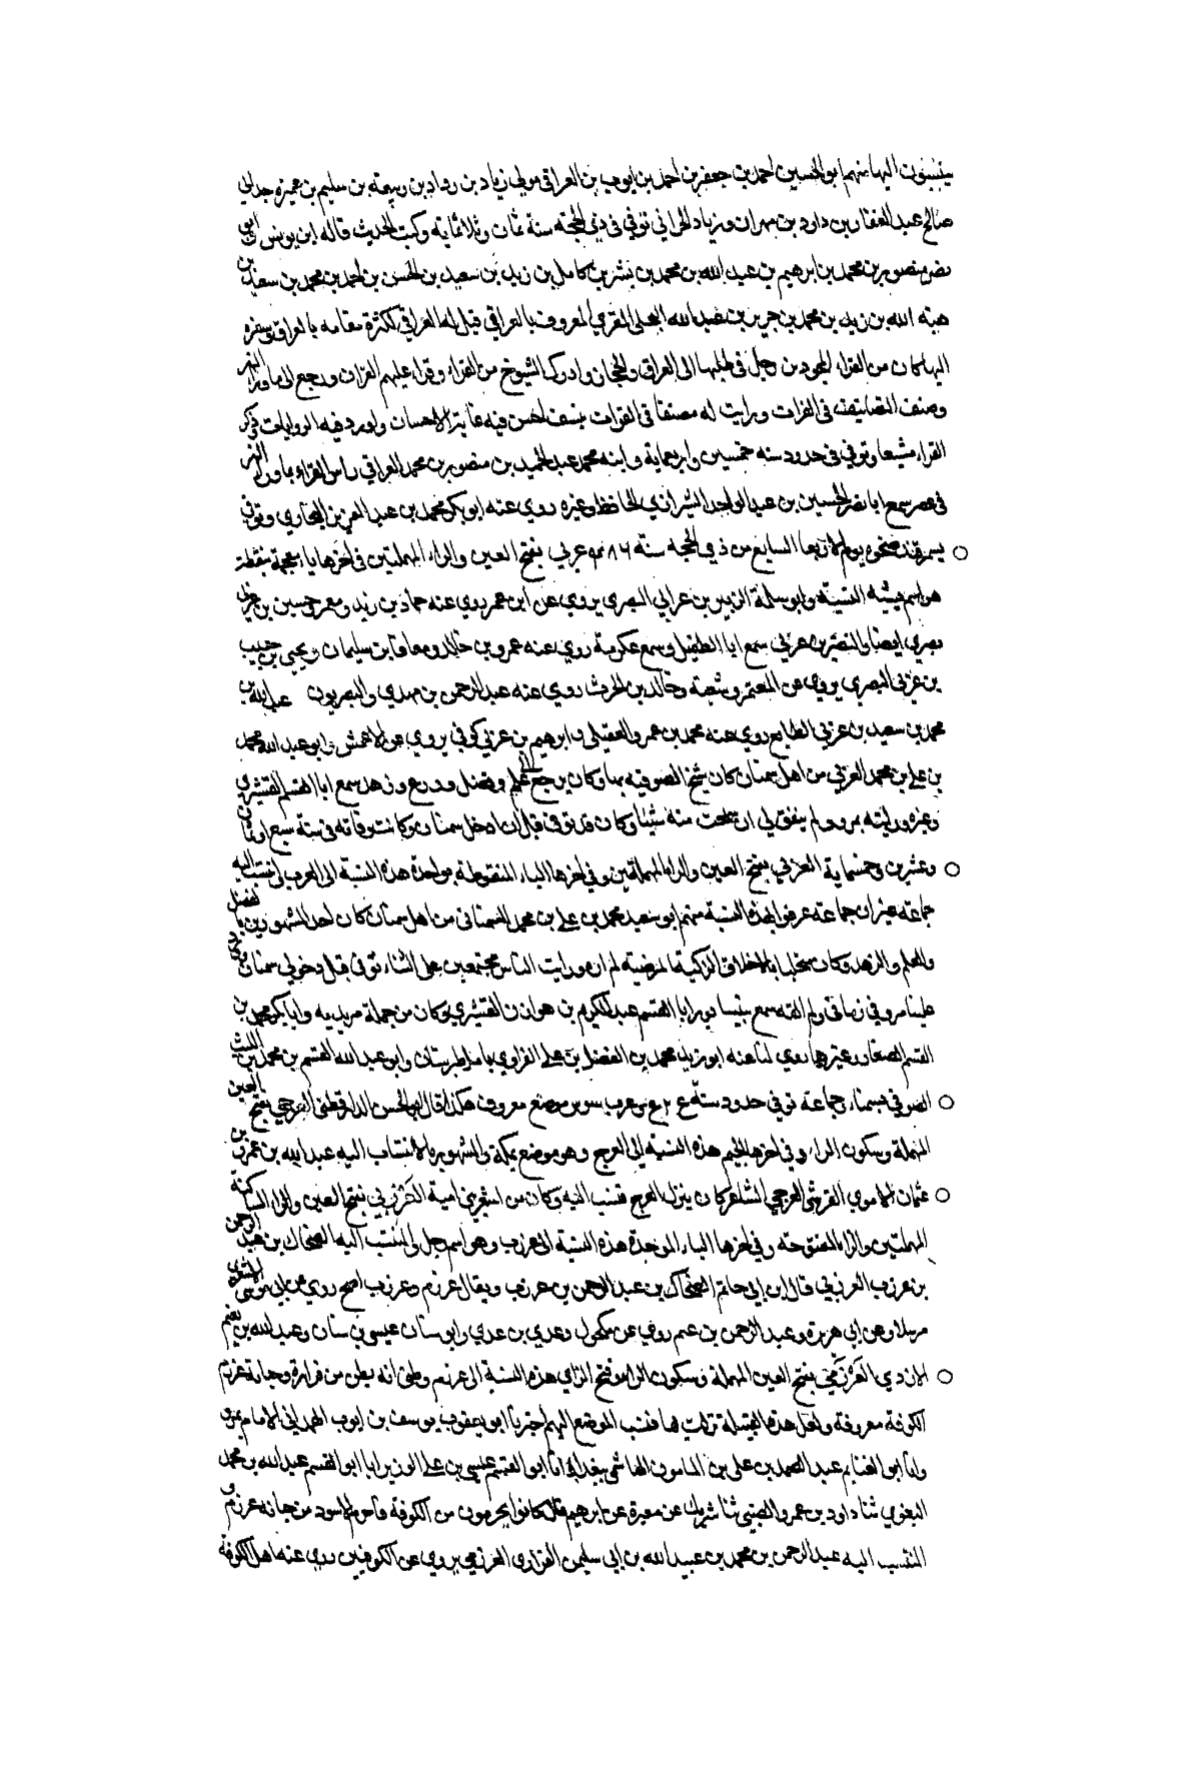 ينسبون اليها منهم ابو الحسين احمد بن جعفر بن احمد بن ايوب بن العراقي مولى زياد بن رداد بن ربيعة بن سليم بن عميره
صالح عبد الغفار بن داود بن مهران وزياد الحراني توفي في ذي الحجة سنة ثمان وثلاثماية وكتبت الحديث قاله ابن يونس
نصر منصور بن محمد بن ابرهيم بن عبد الله بن محمد بن بشر بن كامل بن زيد بن سعيد بن الحسن بن احمد بن محمد بن سعيد بن
هبة الله بن زيد بن محمد بن جرير بن عبد الله البجلي المقري المعروف بالعراقي قيل له العراقي لكثرة مقامه بالعراق وسفره
اليها كان من القراء المجودين رحل في طلبها الى العراق والحجاز وادرك الشيوخ من القراء وقراء عليهم القران ورجع الى ما وراء النهر
وصنف التصانيف في القراات ورايت له مصنفا في القراات بنسف احسن فيه غاية الاحسان واورد فيه الروايات وذكر
القراء مشبعا وتوفي في حدود سنه خمسين واربعماية وابنه محمد عبد الحميد بن منصور بن محمد العراقي راس القراء بما وراء النهر
في عصره سمع ابا نصر الحسين بن عبد الواحد الشيرازي الحافظ وغيره روي عنه ابو بكر محمد بن عبد العزيز البخاري وتوفي
بسمرقند ضحوه يوم الاربعا السابع من ذي الحجه سنة ٤٨٦ عربي بفتح العين والراء المهملتين في اخرها يا معجمة بنقطتين
هو اسم يشبه النسبة وابو سلمة الزبير بن عرابي البصري يروي عن ابن عمر روي عنه حماد بن زيد ومعمر وحسين بن عربي
بصري ايضا والنضر بن عربي سمع ابا الطفيل وسمع عكرمة روي عنه عمرو بن خالد ومعافا بن سليمان ويحيى بن حبيب
بن عربي البصري يروي عن المعتمر وشعبة وخالد بن الحرث روي عنه عبد الرحمن بن مهدي والبصريون عبد الله بن
محمد بن سعيد بن عربي الطابع روي عنه محمد بن عمرو العقيلي وابرهيم بن عربي كوفي يروي عن الاعمش وابو عبد الله محمد
بن علي بن محمد العربي من اهل سمنان كان شيخ الصوفيه بها وكان يرجع الى علم وفضل وورع وزهد سمع ابا القسم القشيري
وغيره ورايته بمرو ولم يتفق لي ان سمعت منه شيئا وكان قد توفي قبل ان ادخل سمنان وكانت وفاته في سنة سبع او ثمان
وعشرين وخمسماية العربي بفتح العين والراء المهملتين وفي اخرها الباء المنقوطة بواحدة هذه النسبة الى العرب انتسب اليه
جماعة غير ان جماعة عرفوا بهذه النسبة منهم ابو سعيد محمد بن علي بن محمد السمناني من اهل سمنان كان احد المشهورين بالفضل
والعلم والزهد وكان متحليا بالاخلاق الزكية المرضية لم اره ورايت الناس مجتمعين على الثناء توفي قبل دخولي سمنان
علينا مرو في زماني ولم القه سمع بنيسابور ابا القسم عبد الكريم بن هوازن القشيري وكان من جملة مريديه وابا بكر محمد بن
القسم الصفار وغيرهما روي لنا عنه ابو زيد محمد بن الفضل بن علي الفزاري بامل طبرستان وابو عبد الله القسم بن محمد بن الليث
الصوفي وجماعة توفي حدود سنة معروف هكذا قال ابو الحسن الدارقطني العرجي بفتح العين
المهملة وسكون الراء وفي اخرها الجيم هذه النسبة الى العرج وهو موضع بمكة والمشهور بالانتساب اليه عبد الله بن عمر بن
عثمان الاموي القرشي العرجي الشاعر كان ينزل العرج فنسب اليه وكان من اشعر بني امية العرزبي بفتح العين والراء الساكنة
المهملتين والزاء المفتوحه وفي اخرها الباء الموحدة هذه النسبة الى عرزب وهو اسم رجل والمنتسب اليه الضحاك بن عبد الرحمن
بن عرزب العرزبي قال ابن ابي حاتم الضحاك بن عبد الرحمن بن عرزب ويقال عرزم وعرزب اصح روي عن ابي موسى الاشعري
مرسلا وعن ابي هريرة وعبد الرحمن بن غنم روي عن مكحول وعدي بن عدي وابو سنان عيسى بن سنان وعبد الله بن نعيم
الازدي العرزمي بفتح العين المهملة وسكون الراء وفتح الزاي هذه النسبة الى عرزم وظني انه بطن من فزارة وجبانة عرزم
الكوفة معروفة ولعل هذه القبيلة نزلت بها فنسب الموضع اليهم اخبرنا ابو يعقوب يوسف بن ايوب الهمداني الامام بمرو
وانا ابو الغنايم عبد الصمد بن علي بن المامون الهاشمي ببغداد انا ابو القسم عيسى بن علي الوزير انا ابو القسم عبد الله بن محمد
البغوي ثنا داود بن عمرو الضبي ثنا شريك عن مغيرة عن ابرهيم قال كانوا يحرمون من الكوفة فاحرم الاسود من جبانة عرزم و
المنتسب اليه عبد الرحمن بن محمد بن عبيد الله بن ابي سليمن الفزاري العرزمي يروي عن الكوفيين روي عنه اهل الكوفة